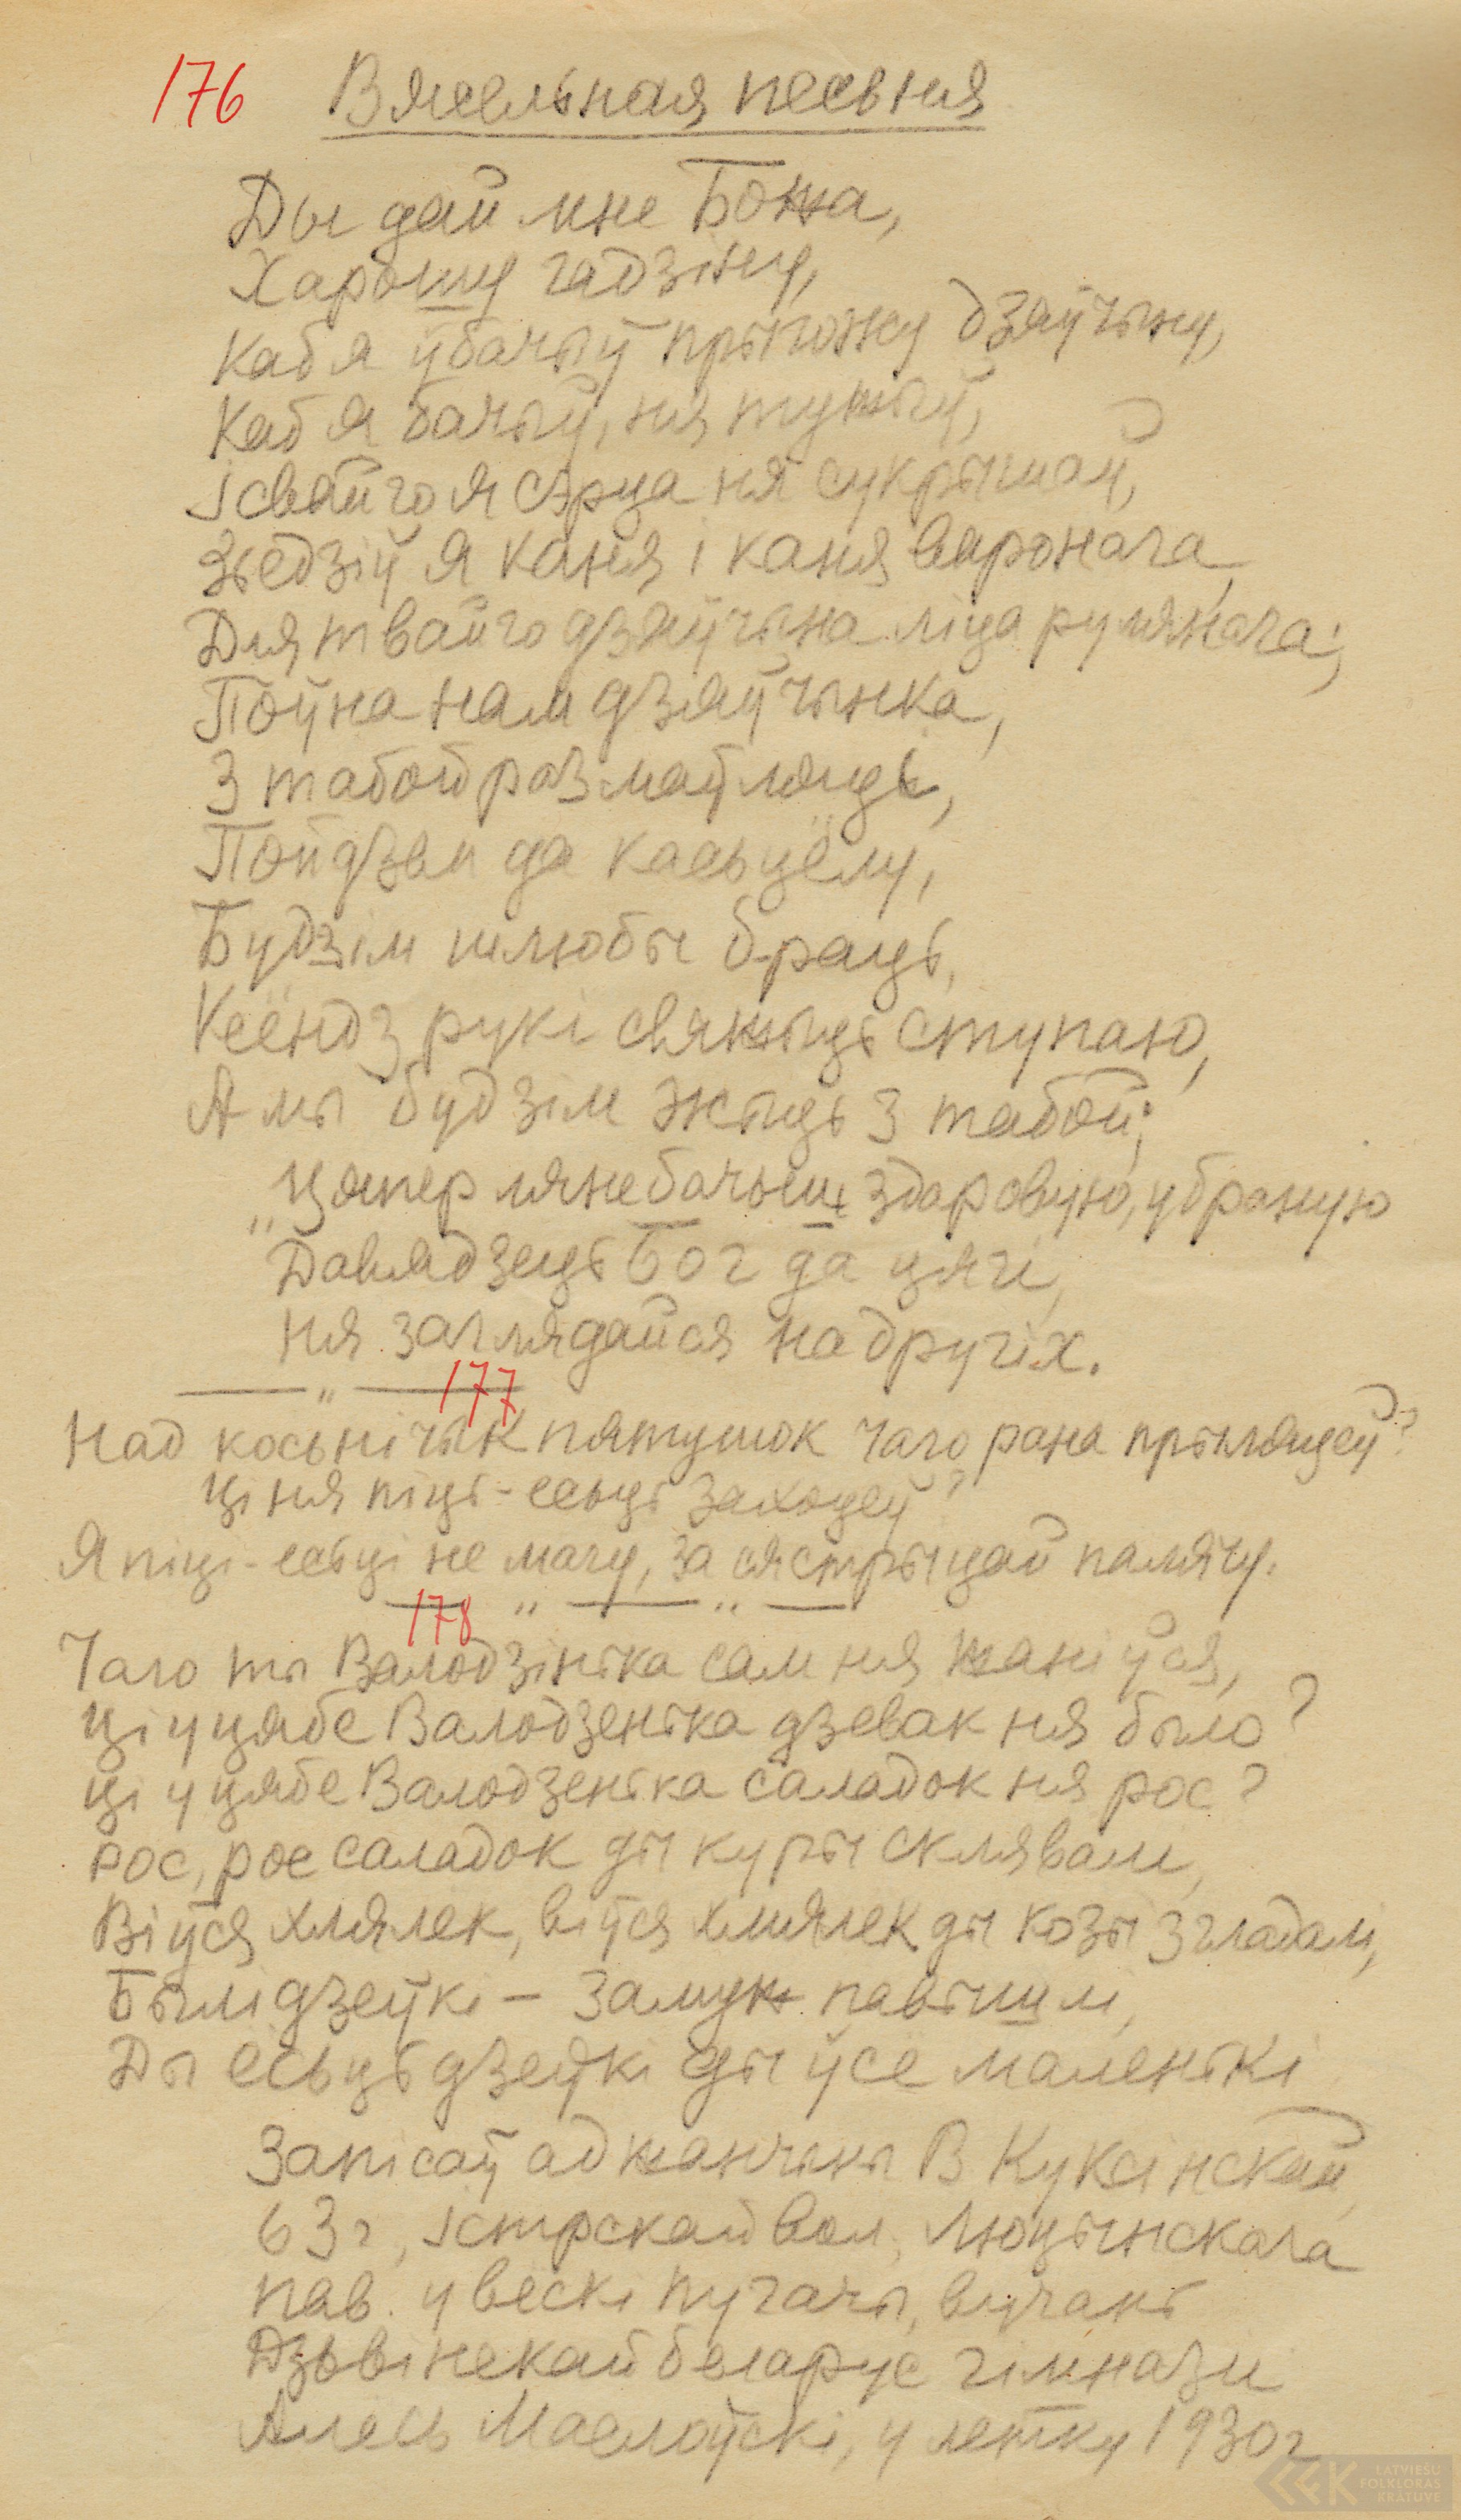 176 Вясельная песьня
Ды дай мне Божа,
Харошу гадзіну,
Каб я ўбачыў прыгожу дзяўчыну,
Каб я бачыў, ня тужыў,
І свайго я сэрца ня сукрышаў,
Зьедзіў я каня і каня варонага,
Для твайго дзяўчына ліца румянага;
Поўна нам дзяўчынка,
З табой размаўляць,
Пойдзем да касьцёлу,
Будзім шлюбы браць,
Ксёндз рукі свяжыць ступаю,
А мы будзім жыць з табой;
„Цяпер мяне бачыш здаровую, убраную
Давядзець Бог да цягі,
ня заглядайся на другіх.
177
Над косьнічык пятушок чаго рана прыляцеў?
Ці ня піць-есьць захоцеў?
Я піці-есьці не магу, за сястрыцай палячу.
178
Чаго ты Валодзінька сам ня жаніўся,
Ці у цябе Валодзенька дзевак ня было?
Ці у цябе Валодзенька саладок ня рос?
Рос, рос саладок ды куры склявалі,
Віўся хмялек, віўся хмялек ды козы згладалі,
Былі дзеўкі – замуж павышлі,
Ды ёсьць дзеўкі ды ўсё маленькі
Запісаў ад жанчыны В Куксінскай,
63 г, Істрскай вол, Люцынскага
пав. у вёскі Пугачы, вучань
Дзьвінскай беларус гімназіі
Алесь Маслоўскі, у летку 1930 г
LATVIEŠU
FOLKLORAS
KRĀTUVE